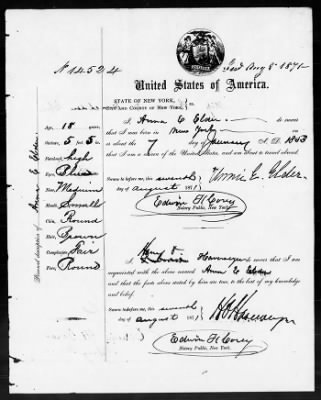 N 14524
Aug 8 1871
United States of America.
STATE OF NEW YORK,
CITY AND COUNTY OF NEW YORK,
I Anna E Elder do swear
that I was born in New York on
or about the 7 day of January A. D. 1853
that I am a citizen of the United States, and am about to travel abroad.
Sworn to before me, this seventh
day of august 1871
Edwin F. Corey
Notary Public, New York.
Personal description of Anna E Elder
Age, 18 years
Stature, 5 feet 5 in.
Forehead, high
Eyes, Blue
Nose, Medium
Mouth, Small
Chin, Round
Hair, Brown
Complexion, Fair
Face, Round
I Havemeyer do swear that I am
acquainted with the above named Anna E Elder
and that the facts above stated by him are true, to the best of my knowledge
and belief.
Sworn to before me, this seventh
day of august 1871
Edwin F. Corey
Notary Public, New York.